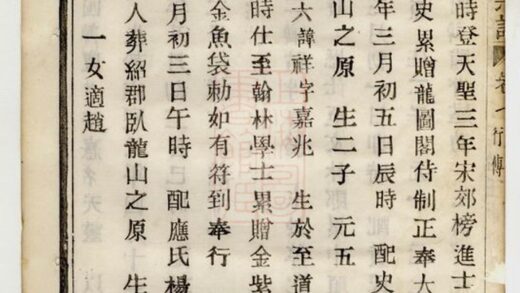 譜 卷 行傳
時登天聖三年宋郊榜進士
史累贈龍圖閣侍制正奉大
年三月初五日辰時 配史
山之原 生二子 元五
六諱祥字嘉兆 生於至道
時仕至翰林學士累贈金紫
金魚袋勅如有符到奉行
月初三日午時 配應氏楊
人葬紹郡臥龍山之原 生
一女適趙